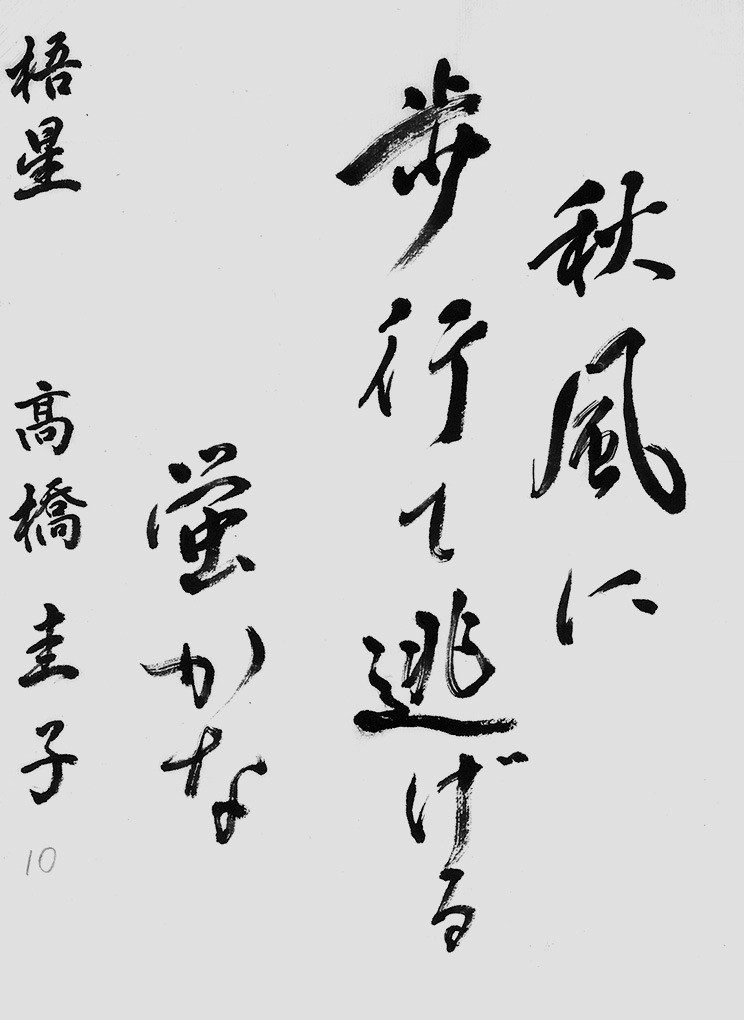 秋風に
歩行て逃げる
蛍かな
梧星 高橋圭子
10